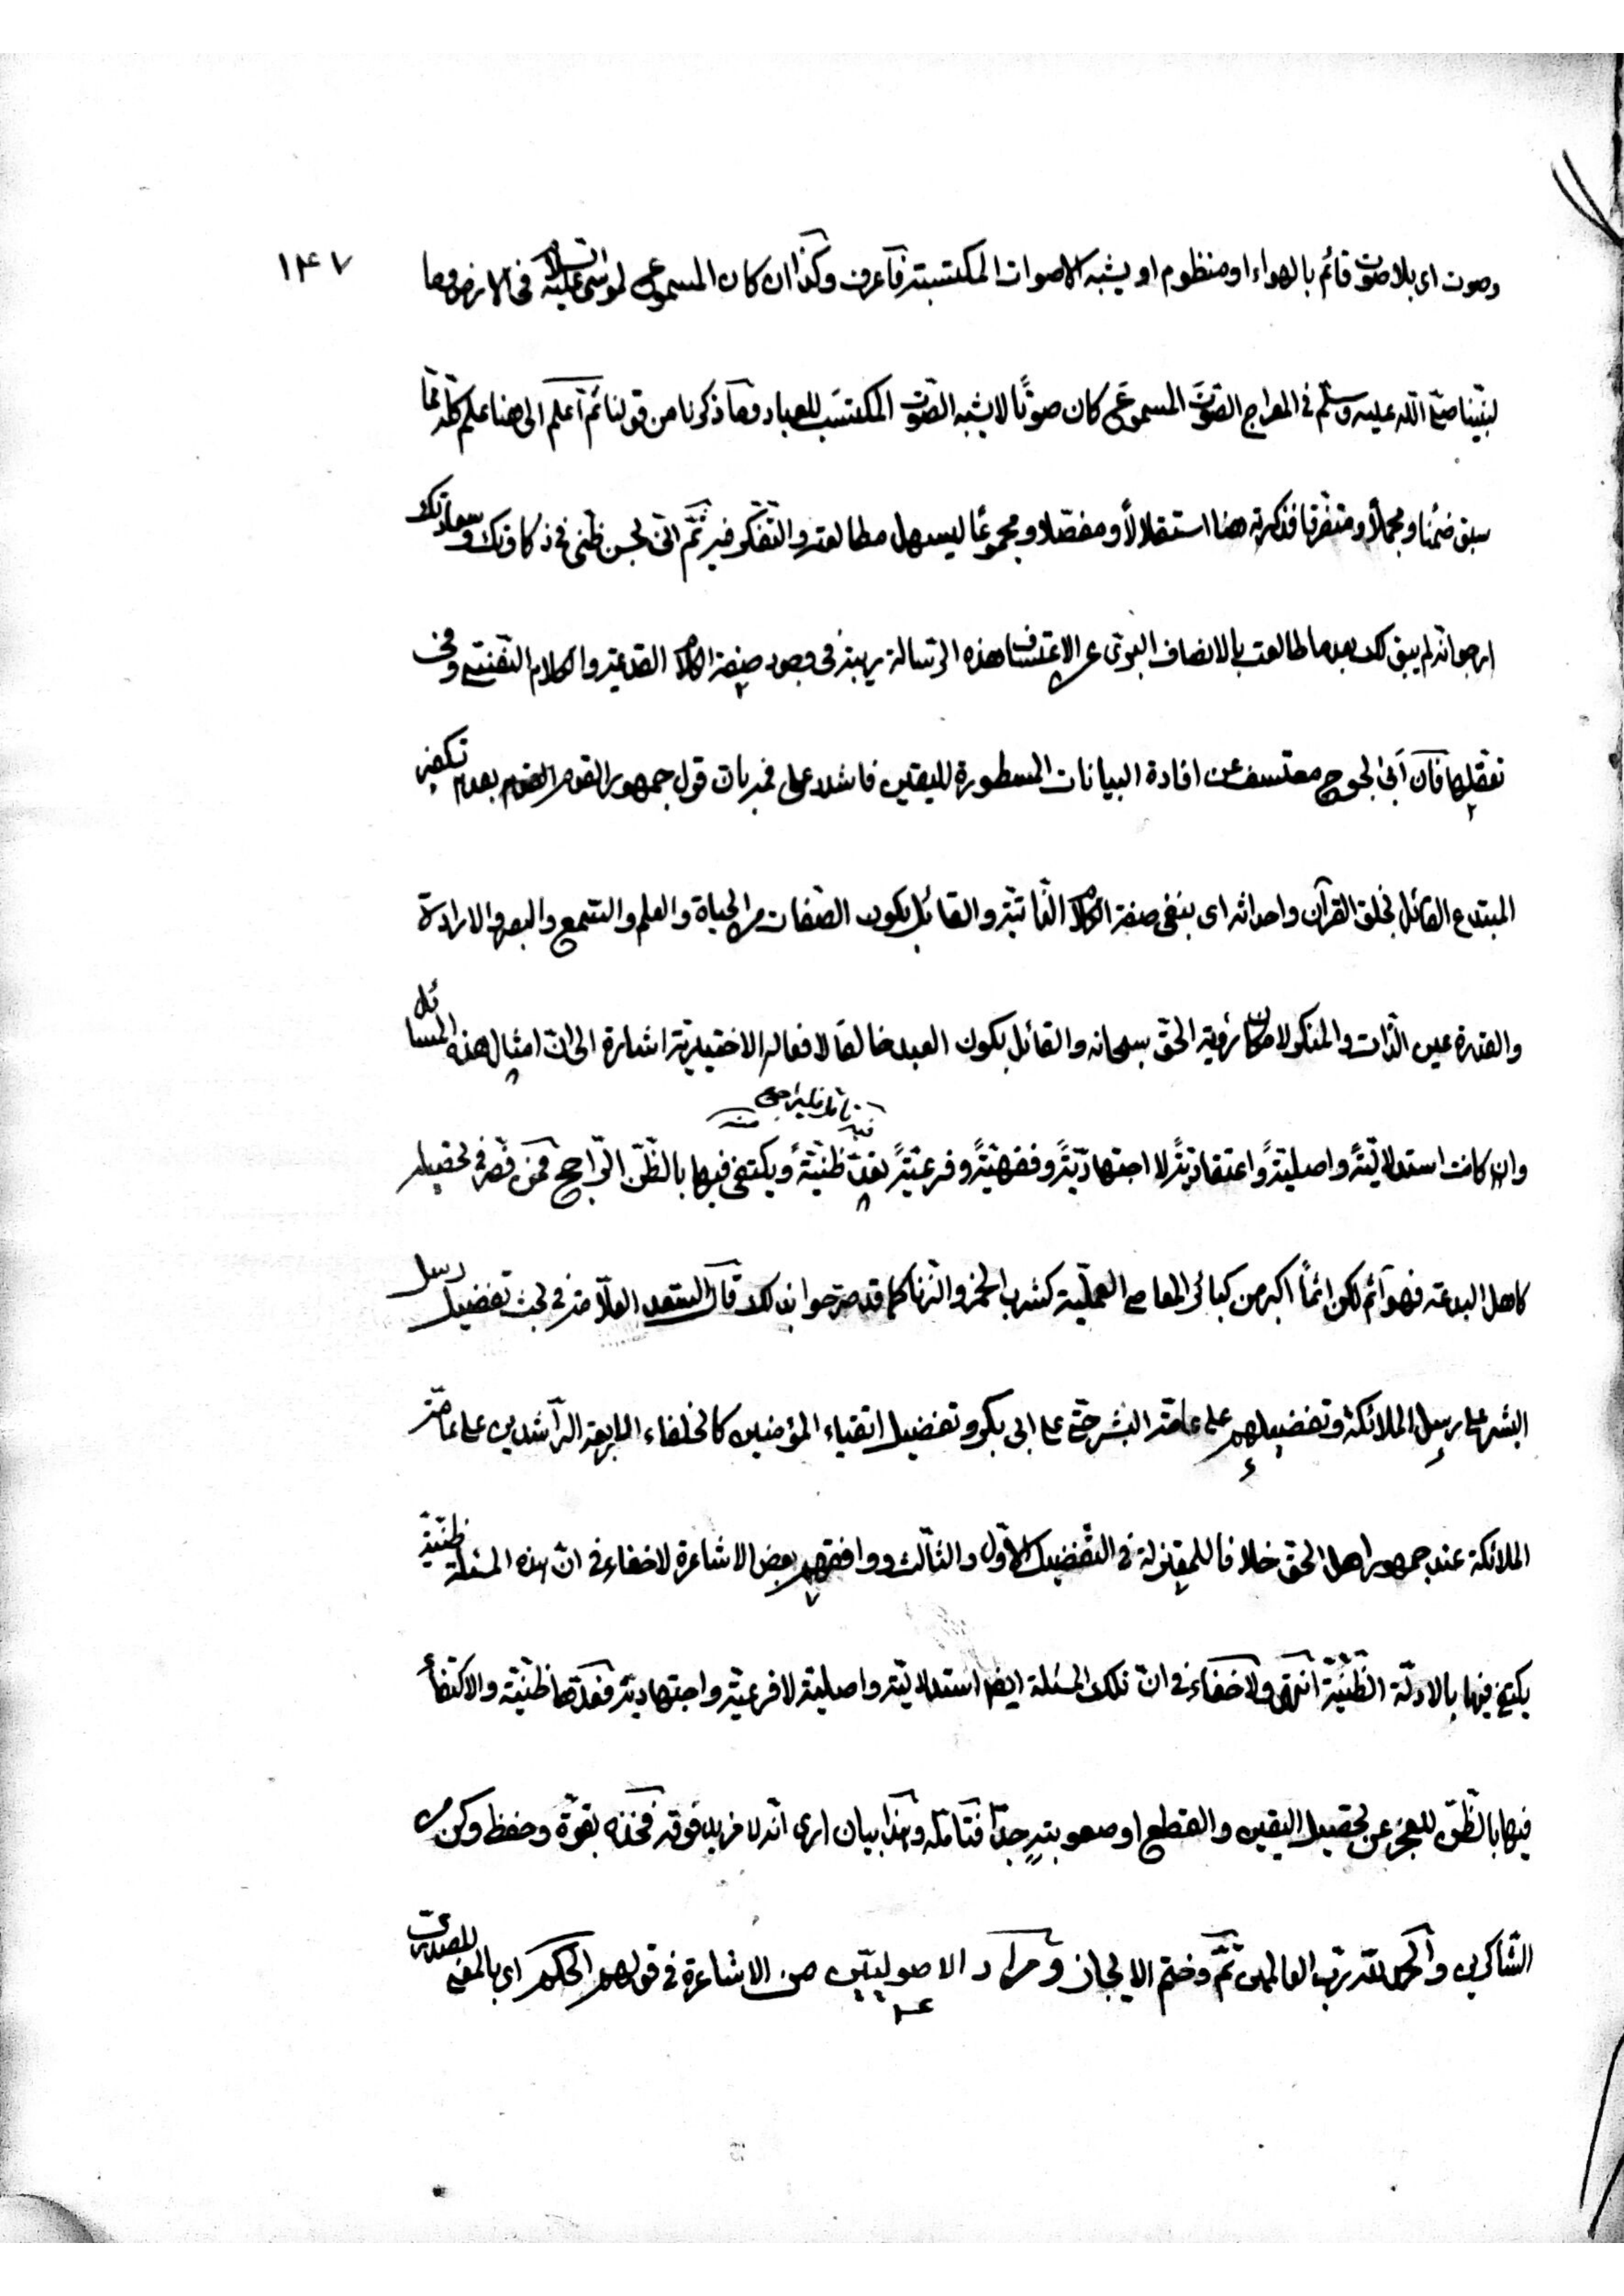 ١٤٧
وصوت اى بلا صوت قائم بالهواء او منظوم او يشبه الاصوات المكتسبة فاعرف وكذا ان كان المسموع لموسى عليه السلام فى الارض وما
لنبينا صلّى اللّه عليه وسلّم فى المعراج الصّوت المسموع كان صوتًا لا يشبه الصّوت المكتسَب للعباد وما ذكرنا من قولنا ثم اعلم الى هنا علم كلّه ممّا
سبق ضمنًا ومجملًا ومتفرقا فذكرته هنا استقلالًا ومفصّلا ومجموعًا ليسهل مطالعته والتّفكّر فيه ثمّ انّى لحسن ظنّى فى ذكاوتك وسعادتك
ارجو انّه لم يبق لك بعد ما طالعت بالانصاف البرىّ عن الاعتساف هذه الرّسالة ريبة فى وجود صفة الكلام القديمة والكلام النّفسىّ وفى
تعقلها فان ابى لجوج معتسف عن افادة البيانات المسطورة لليقين فاشدد على فمه بان قول جمهور القوم بعدم تكفير
المبتدع القائل بخلق القرآن واحداثه اى بنفى صفة الكلام الذّاتيّة والقائل بكون الصّفات من الحياة والعلم والسّمع والبصر والارادة
والقدرة عين الذّات والمنكر لامكان رؤية الحقّ سبحانه والقائل بكون العبد خالقا لافعاله الاختياريّة اشارة الى انّ امثال هذه المسائل
فيه تأمل فليراجع منه
وان كانت استدلاليّةً واصليةً واعتقاديّةً لا اجتهاديّةً وفقهيّةً وفرعيّةً تعدّ ظنّيّةً ويكتفى فيها بالظّنّ الرّاجح فمن قصّر فى تحصيله
كاهل البدعة فهو آثم لكن اثمًا اكبر من كبائر المعاصى العمليّة كشرب الخمر والزّنا كما قد صرّحوا بذلك قال السّعد العلّامة فى بحث تفضيل رسل
البشر على رسل الملائكة وتفضيلهم على عامّة البشر حتّى على ابى بكر وتفضيل اتقياء المؤمنين كالخلفاء الاربعة الرّاشدين على عامّة
الملائكة عند جمهور اهل الحق خلافا للمعتزلة فى التّفضيل الاوّل والثّالث ووافقهم بعض الاشاعرة لا خفاء فى انّ هذه المسئلة ظنّيّة
يكتفى فيها بالادلّة الظّنّيّة انتهى ولا خفاء فى انّ تلك المسئلة ايضا استدلاليّة واصلية لا فرعيّة واجتهاديّة فعدّها ظنّيّة والاكتفاء
فيها بالظّنّ للعجز عن تحصيل اليقين والقطع او صعوبته جدّا فتأمّله وهذا بيان ارى انّه لا مزيد فوقه فخذه بقوّة وحفظ وكن من
الشّاكرين والحمد للّه ربّ العالمين ثمّ وختم الايجاز ومراد الاصوليّين من الاشاعرة فى قولهم الحكم اى بالمعنى المصدرىّ